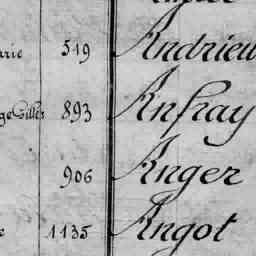 arie 519 Andrieu
ge Gilles 893 Anfray
906 Anger
e 1135 Angot